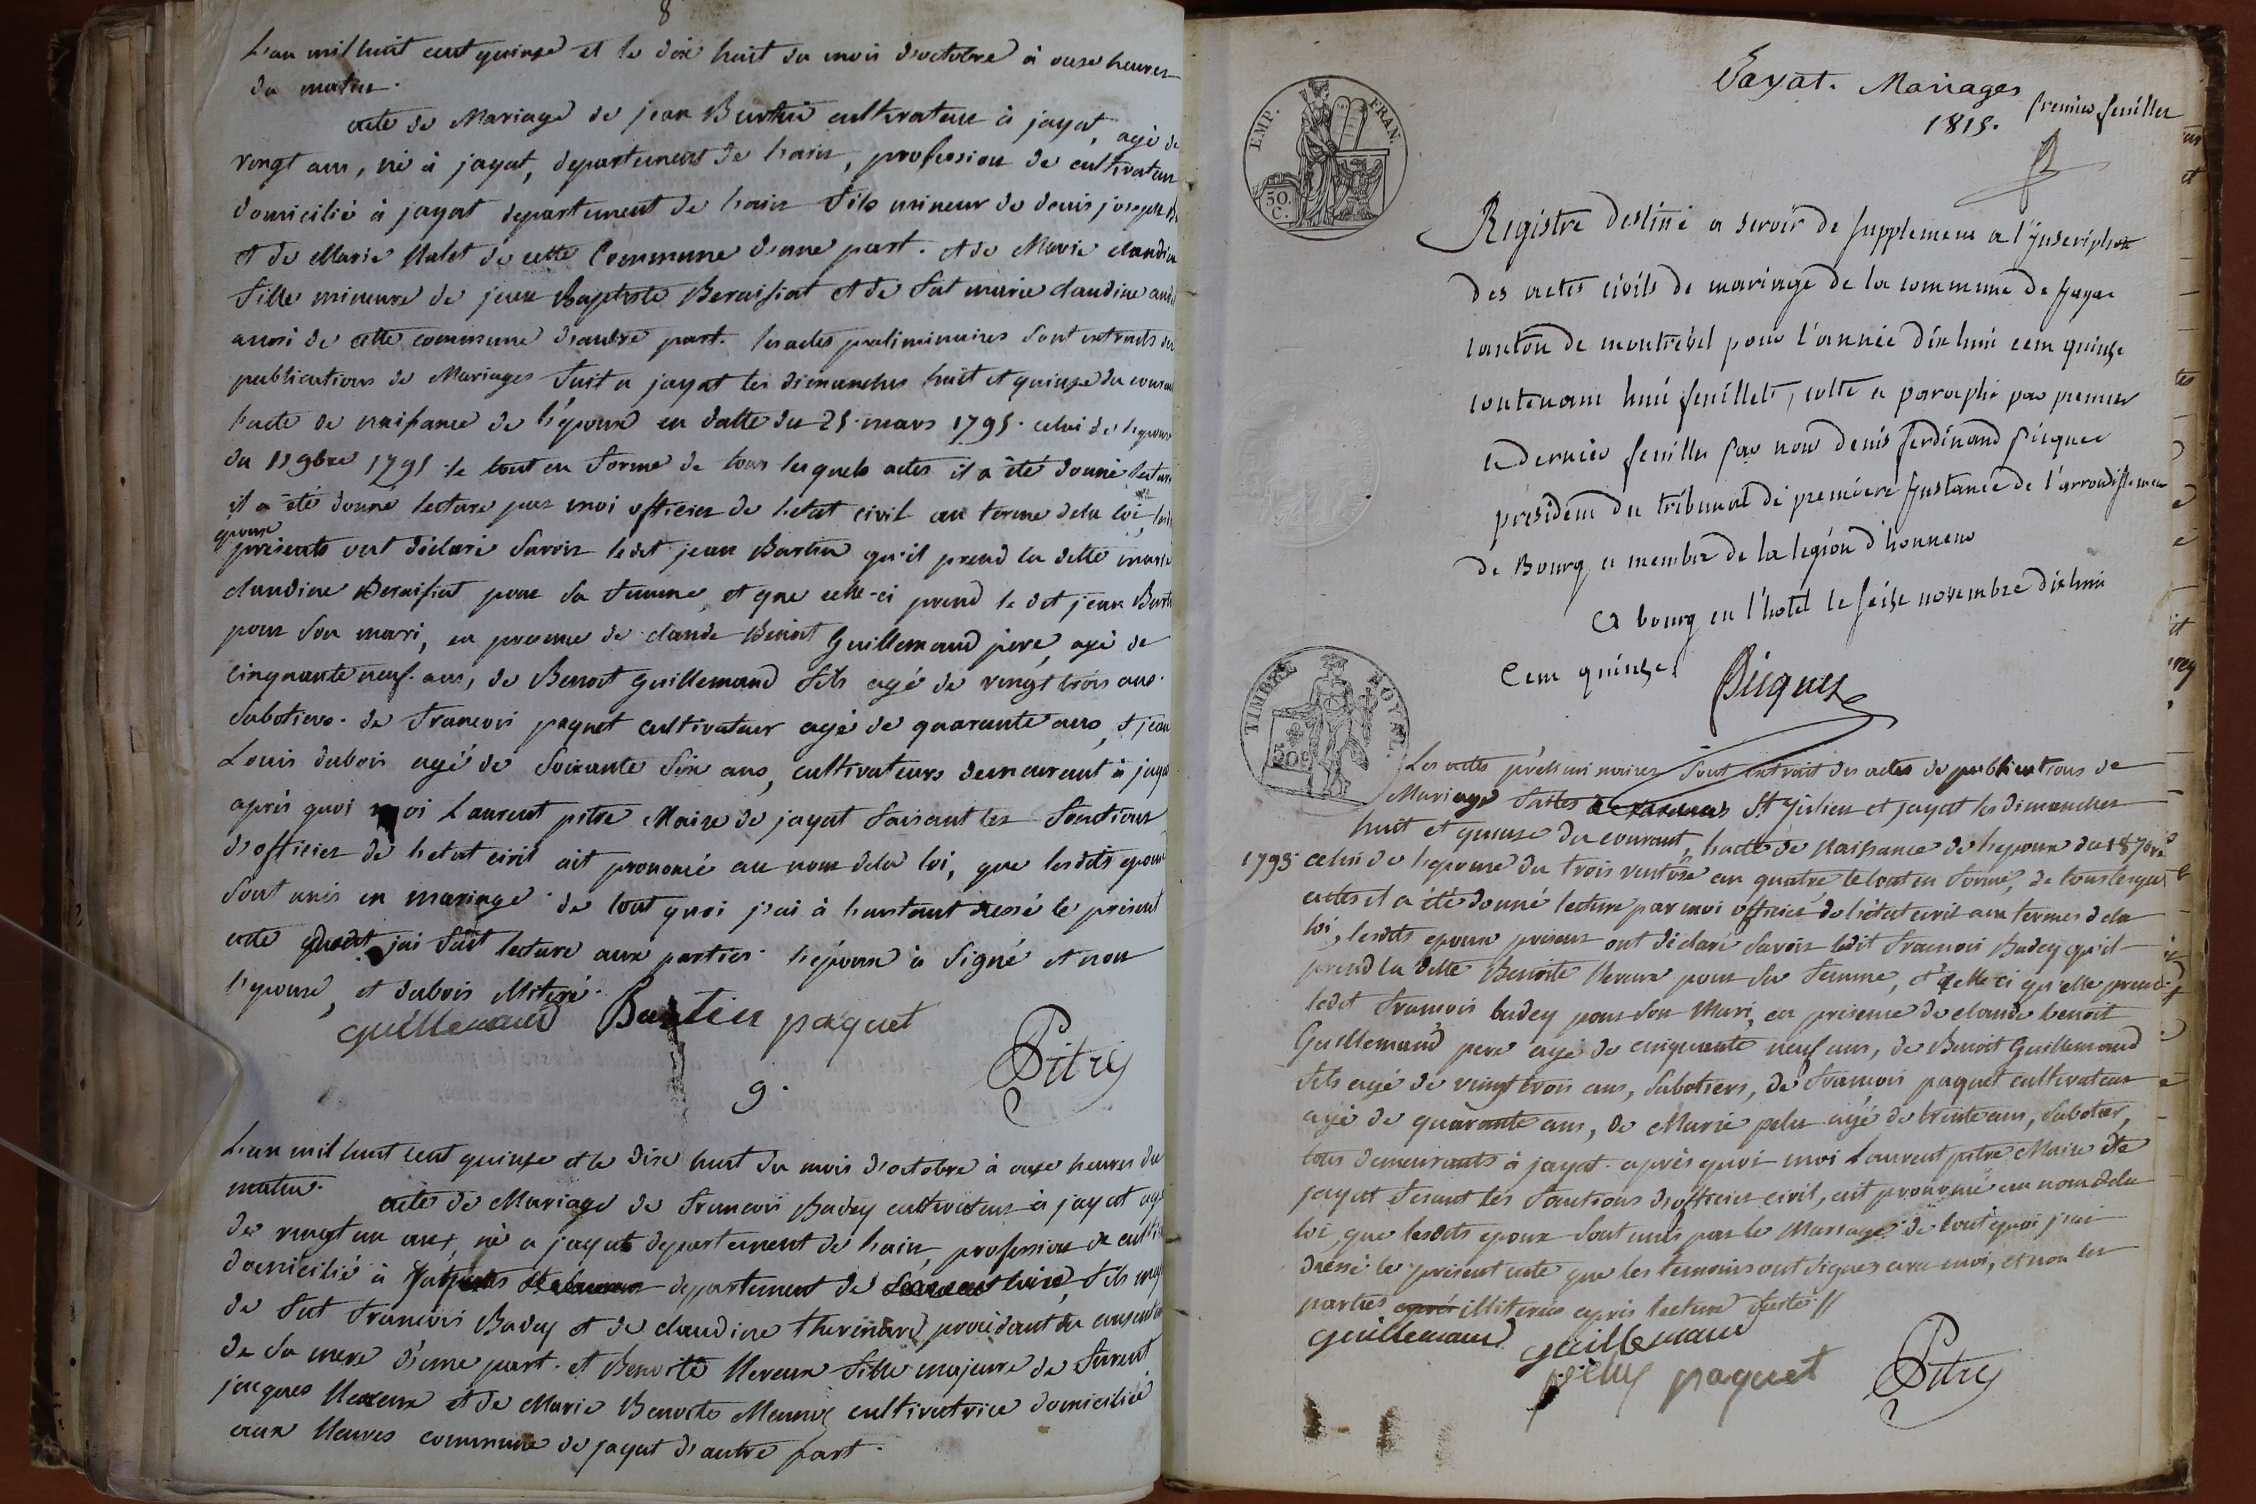 8
L'an mil huit cent quinze et le dix huit du mois d'octobre à onze heures
du matin.
acte de Mariage de jean Burtin cultivateur à jayat, agé de
vingt ans, né à jayat, departement de l'ain, profession de cultivateur
domicilié à jayat departement de l'ain fils mineur de denis joseph
et de Marie Malet de cette Commune d'une part. et de Marie claudine
fille mineure de jean Baptiste Beraisiat et de fut marie claudine
aussi de cette commune d'autre part. les actes preliminaires sont extraits des
publications de Mariages fait a jayat les dimanches huit et quinze du courant
l'acte de naissance de l'époux en datte du 25 mars 1795. celui de l'epouse
du 9bre 1795 le tout en forme de tous lesquels actes il a été donné lecture
il a été donné lecture par moi officier de l'etat civil au terme de la loi, les
epoux
présents ont déclaré savoir ledit jean Burtin qu'il prend la ditte marie
claudine Beraisiat pour sa femme, et que celle-ci prend le dit jean Burtin
pour son mari, en presence de claude Benoit Guillemaud père, agé de
cinquante neuf ans, de Benoit Guillemaud fils agé de vingt trois ans
sabotiers. de francois paquet cultivateur agé de quarante ans, et jean
Louis dubois agé de soixante six ans, cultivateurs demeurant à jayat
après quoi moi Laurent pitre Maire de jayat faisant les fonctions
d'officier de l'etat civil ait prononcé au nom de la loi, que lesdits epoux
sont unis en mariage. de tout quoi j'ai à l'instant dressé le présent
acte duquel j'ai fait lecture aux parties. l'époux à signé et non
l'epouse, et dubois illiteré.
guillemaud Burtin paquet
Pitre
9.
L'an mil huit cent quinze et le dix huit du mois d'octobre à onze heures du
matin.
acte de Mariage de francois Badey cultivateur à jayat agé
de vingt un ans, né a jayat departement de l'ain, profession de
domicilié à departement de fils
de fut francois Badey et de claudine thevenard procédant du
de sa mere d'une part. et Benoite Neveux fille majeure de furent
jacques Neveux et de Marie Benoite Meunis cultivatrice domiciliée
aux Neuves commune de jayat d'autre part.
Jayat. Mariages
1815. premier feuillet
Registre destiné a servir de supplement a l'ynscription
des actes civils de mariage de la commune de Jayat
canton de montrevel pour l'année dix huit cent quinze
contenant huit feuillets, cotté et paraphé par premier
et dernier feuillet par nous denis ferdinand Picquet
président du tribunal de premiere ynstance de l'arrondissement
de Bourg et membre de la legion d'honneur
A bourg en l'hotel le seize novembre dix huit
cent quinze.
Picquet
EMP. FRAN.
50. C.
TIMBRE ROYAL.
50c
Les actes préliminaires sont extrait des actes de publications de
Mariage faittes St Julien et jayat les dimanches
huit et quinze du courant, l'acte de Naissance de l'epoux du 18
1793. celui de l'epouse du trois ventose an quatre le tout en forme, de tous lesquels
actes il a été donné lecture par moi officier de l'état civil aux termes de la
loi, lesdits epoux présens ont déclaré savoir ledit francois Badey qu'il
prend la ditte Benoite Neveux pour sa femme, et celle ci qu'elle prend
ledit francois badey pour son Mari, en présence de claude benoit
Guillemaud pere agé de cinquante neuf ans, de Benoit Guillemaud
fils agé de vingt trois ans, sabotiers, de francois paquet cultivateur
agé de quarante ans, de Marie pelus agé de trente ans, sabotier,
tous demeurants à jayat. après quoi moi Laurent pitre Maire de
jayat fesant les fonctions d'officier civil, ait prononcé au nom de la
loi, que lesdits epoux sont unis par le Mariage. de tout quoi j'ai
dressé le présent acte que les temoins ont signés avec moi, et non les
parties illiterés après lecture faite //
guillemaud guillemaud
pelus paquet
Pitre